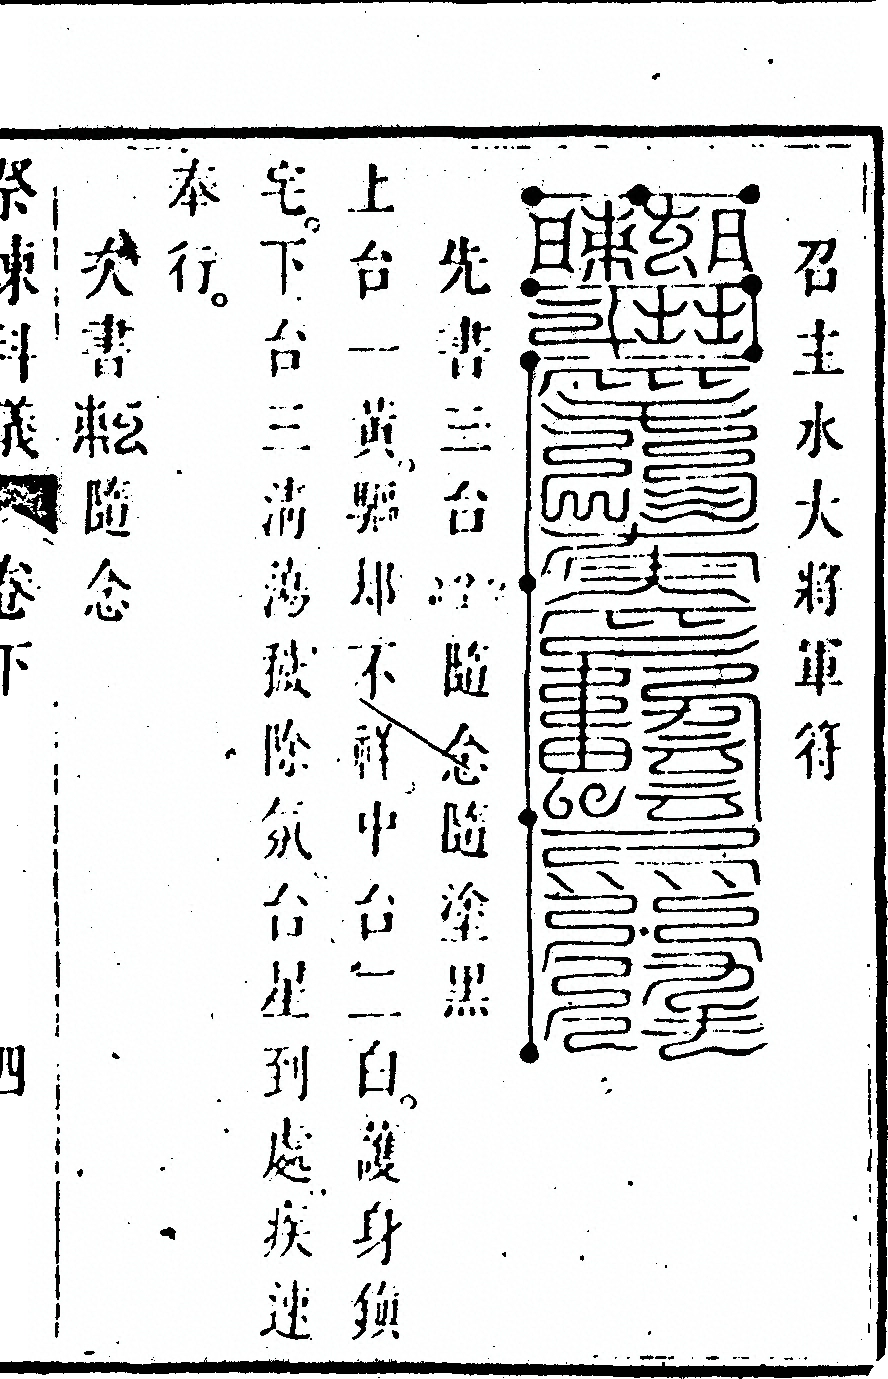 召主水大將軍符
先書三台 隨念隨塗黑
上台一黃。驅邪不祥。中台二白。護身鎮
宅。下台三清。澙穢除氛。台星到處。疾速
奉行。
次書䡖隨念
祭煉科儀 卷下 四